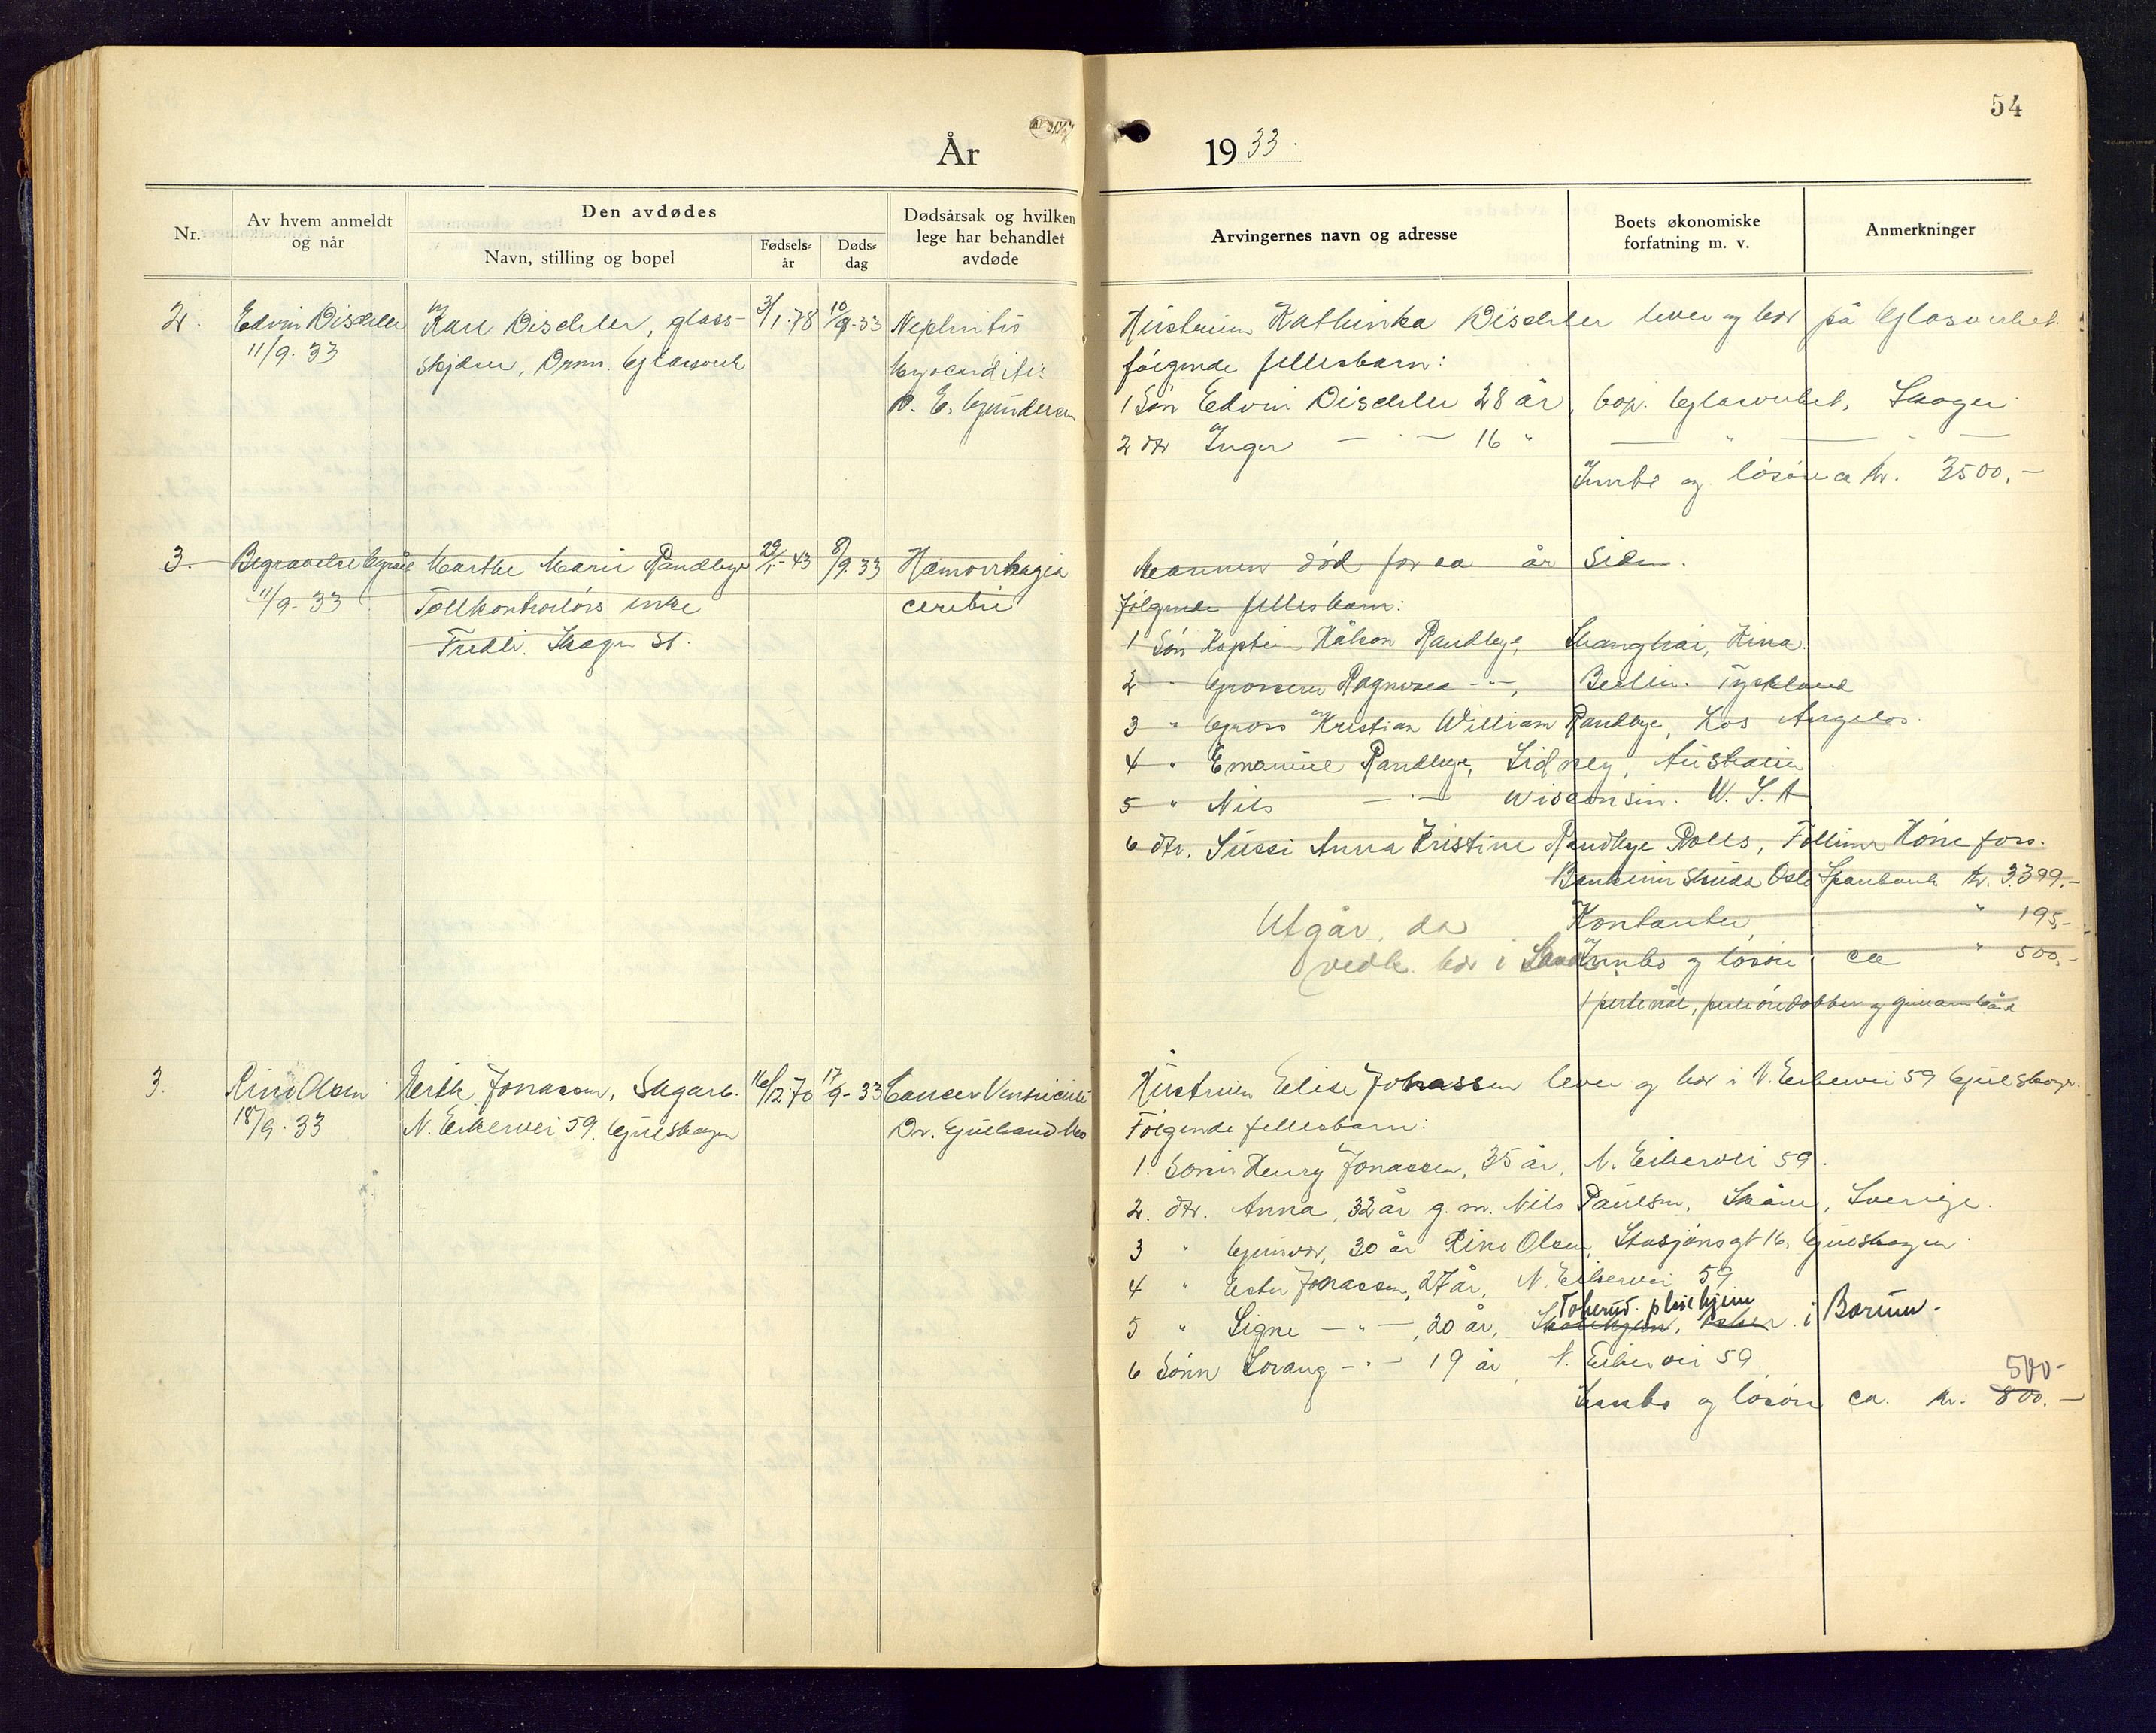 54
År 1933.
Nr.
Av hvem anmeldt og når
Den avdødes
Navn, stilling og bopel
Fødsels-år
Døds-dag
Dødsårsak og hvilken lege har behandlet avdøde
Arvingernes navn og adresse
Boets økonomiske forfatning m. v.
Anmerkninger
2. Edvin Dischler Karl Dischler, glass- 3/1-78 10/9-33 Nephritis
11/9.33 skjærer, Drm. Glassverk Myocarditis
E. Gundersen
Hustruen Kathinka Dischler lever og bor på Glasverket.
følgende fellesbarn:
1 Søn Edvin Dischler 28 år, bop. Glasverket, Skoger
2 dtr Inger — " — 16 " — " — " —
Innbo og løsøre ca kr. 3500,-
3. Begravelse Marthe Marie Randbye 29/1-43 8/9.33 Hæmorrhagia
11/9-33 Tollkontrolørs enke cerebri
Fredli. Skoger st.
Mannen død for ca år siden.
følgende fellesbarn:
1 Søn Kaptein Håkon Randbye, Shanghai, Kina.
2 " Grosserer Ragnvald -"-, Berlin. Tyskland
3 " Gross Kristian William Randbye, Los Angelos.
4 " Emanuel Randbye, Sidney, Australien
5 " Nils — " — Wisconsin. U. S. A
6 dtr. Sussi Anna Kristine Randbye Rolls, Hønefoss.
Bankinnskudd Oslo Sparebank kr. 3399,-
Utgår, da Kontanter " 195,-
vedk. bor i Innbo og løsøre ca " 500,-
1 perlenål, perleøredobber og
3. Rino Olsen Erik Jonassen, Sagarb. 16/12-70 17/9-33 Cancer Ventriculi
18/9.33 N. Eikervei 59, Gulskogen Dr. Gulbrand
Hustruen Elise Jonassen lever og bor i N. Eikervei 59 Gulskogen.
Følgende fellesbarn:
1. Sønn Henry Jonassen, 35 år, N. Eikervei 59.
2. dtr. Anna, 32 år g. m. Nils Paulsen, Skåne, Sverige.
3 " Gunvor, 30 år Rino Olsen, Stasjonsgt 16, Gulskogen
4 " Ester Jonassen, 27 år, N. Eikervei 59
Tokerud pleiehjem
5 " Signe — " —, 20 år, i Bærum.
6 Sønn — " — 19 år, N. Eikervei 59.
500-
Innbo og løsøre ca. kr. 800.-